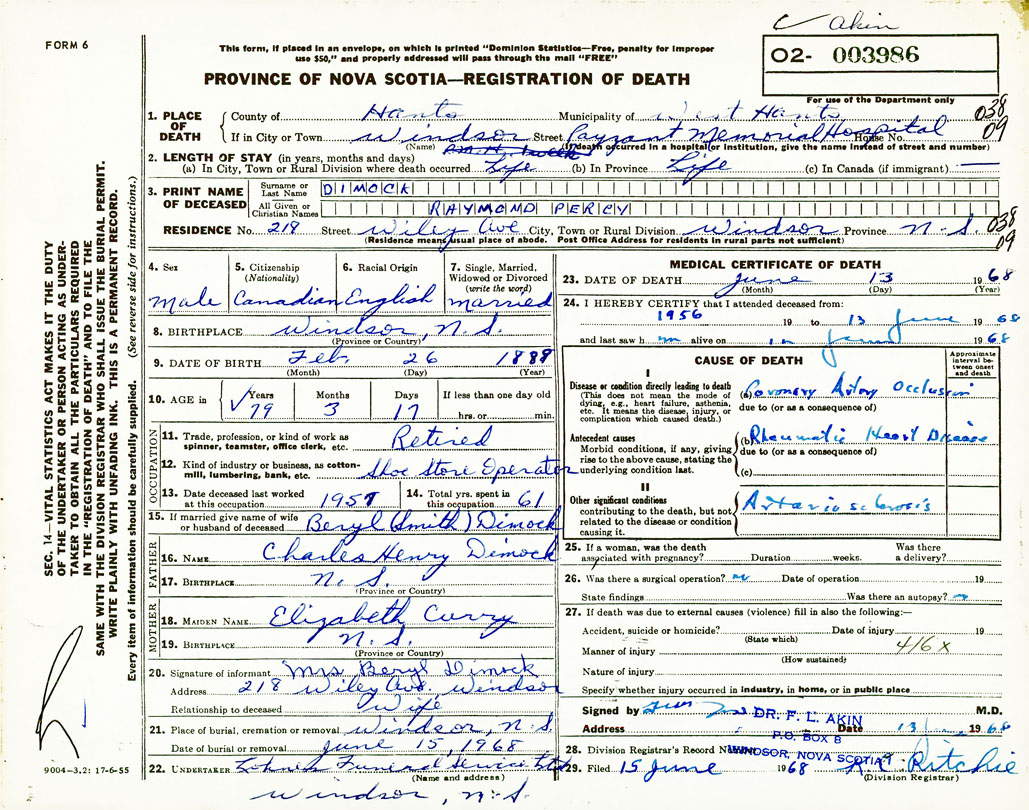 Akin
FORM 6
This form, if placed in an envelope, on which is printed "Dominion Statistics—Free, penalty for improper
use $50," and properly addressed will pass through the mail "FREE"
O2- 003986
PROVINCE OF NOVA SCOTIA—REGISTRATION OF DEATH
For use of the Department only
1. PLACE OF DEATH County of Hants Municipality of West Hants 038
If in City or Town Windsor Street Payzant Memorial Hospital House No. 09
(Name) (If death occurred in a hospital or institution, give the name instead of street and number)
2. LENGTH OF STAY (in years, months and days)
(a) In City, Town or Rural Division where death occurred Life (b) In Province Life (c) In Canada (if immigrant) —
3. PRINT NAME OF DECEASED Surname or Last Name DIMOCK
All Given or Christian Names RAYMOND PERCY
RESIDENCE No. 218 Street Wiley Ave City, Town or Rural Division Windsor Province N.S. 038
09
(Residence means usual place of abode. Post Office Address for residents in rural parts not sufficient)
4. Sex Male
5. Citizenship (Nationality) Canadian
6. Racial Origin English
7. Single, Married, Widowed or Divorced (write the word) married
8. BIRTHPLACE Windsor, N.S.
(Province or Country)
9. DATE OF BIRTH Feb. 26 1888
(Month) (Day) (Year)
10. AGE in Years 79 Months 3 Days 17 If less than one day old hrs. or min.
OCCUPATION
11. Trade, profession, or kind of work as spinner, teamster, office clerk, etc. Retired
12. Kind of industry or business, as cotton-mill, lumbering, bank, etc. Shoe Store Operator
13. Date deceased last worked at this occupation 1957
14. Total yrs. spent in this occupation 61
15. If married give name of wife or husband of deceased Beryl (Smith) Dimock
FATHER
16. NAME Charles Henry Dimock
17. BIRTHPLACE N.S.
(Province or Country)
MOTHER
18. MAIDEN NAME Elizabeth Curry
19. BIRTHPLACE N.S.
(Province or Country)
20. Signature of informant Mrs Beryl Dimock
Address 218 Wiley Ave. Windsor
Relationship to deceased Wife
21. Place of burial, cremation or removal Windsor, N.S.
Date of burial or removal June 15, 1968
22. UNDERTAKER Funeral Service Ltd
(Name and address)
Windsor, N.S.
MEDICAL CERTIFICATE OF DEATH
23. DATE OF DEATH June 13 1968
(Month) (Day) (Year)
24. I HEREBY CERTIFY that I attended deceased from:
1956 19 to 13 June 1968
and last saw h im alive on 1968
CAUSE OF DEATH
Approximate interval between onset and death
I
Disease or condition directly leading to death
(This does not mean the mode of dying, e.g., heart failure, asthenia, etc. It means the disease, injury, or complication which caused death.)
(a) Coronary Artery Occlusion
due to (or as a consequence of)
Antecedent causes
Morbid conditions, if any, giving rise to the above cause, stating the underlying condition last.
(b) Rheumatic Heart Disease
due to (or as a consequence of)
(c)
II
Other significant conditions
contributing to the death, but not related to the disease or condition causing it.
Arteriosclerosis
25. If a woman, was the death associated with pregnancy? Duration weeks. Was there a delivery?
26. Was there a surgical operation? Date of operation 19
State findings Was there an autopsy?
27. If death was due to external causes (violence) fill in also the following:—
Accident, suicide or homicide? Date of injury 19
(State which)
Manner of injury 416 X
(How sustained)
Nature of injury
Specify whether injury occurred in industry, in home, or in public place
Signed by M.D.
DR. F. L. AKIN
Address Date 13 1968
P.O. BOX 8
28. Division Registrar's Record Number
WINDSOR, NOVA SCOTIA
29. Filed 15 June 1968 Ritchie
(Division Registrar)
SEC. 14—VITAL STATISTICS ACT MAKES IT THE DUTY
OF THE UNDERTAKER OR PERSON ACTING AS UNDER-
TAKER TO OBTAIN ALL THE PARTICULARS REQUIRED
IN THE "REGISTRATION OF DEATH" AND TO FILE THE
SAME WITH THE DIVISION REGISTRAR WHO SHALL ISSUE THE BURIAL PERMIT.
WRITE PLAINLY WITH UNFADING INK. THIS IS A PERMANENT RECORD.
Every item of information should be carefully supplied. (See reverse side for instructions.)
9004—3.2: 17-6-55